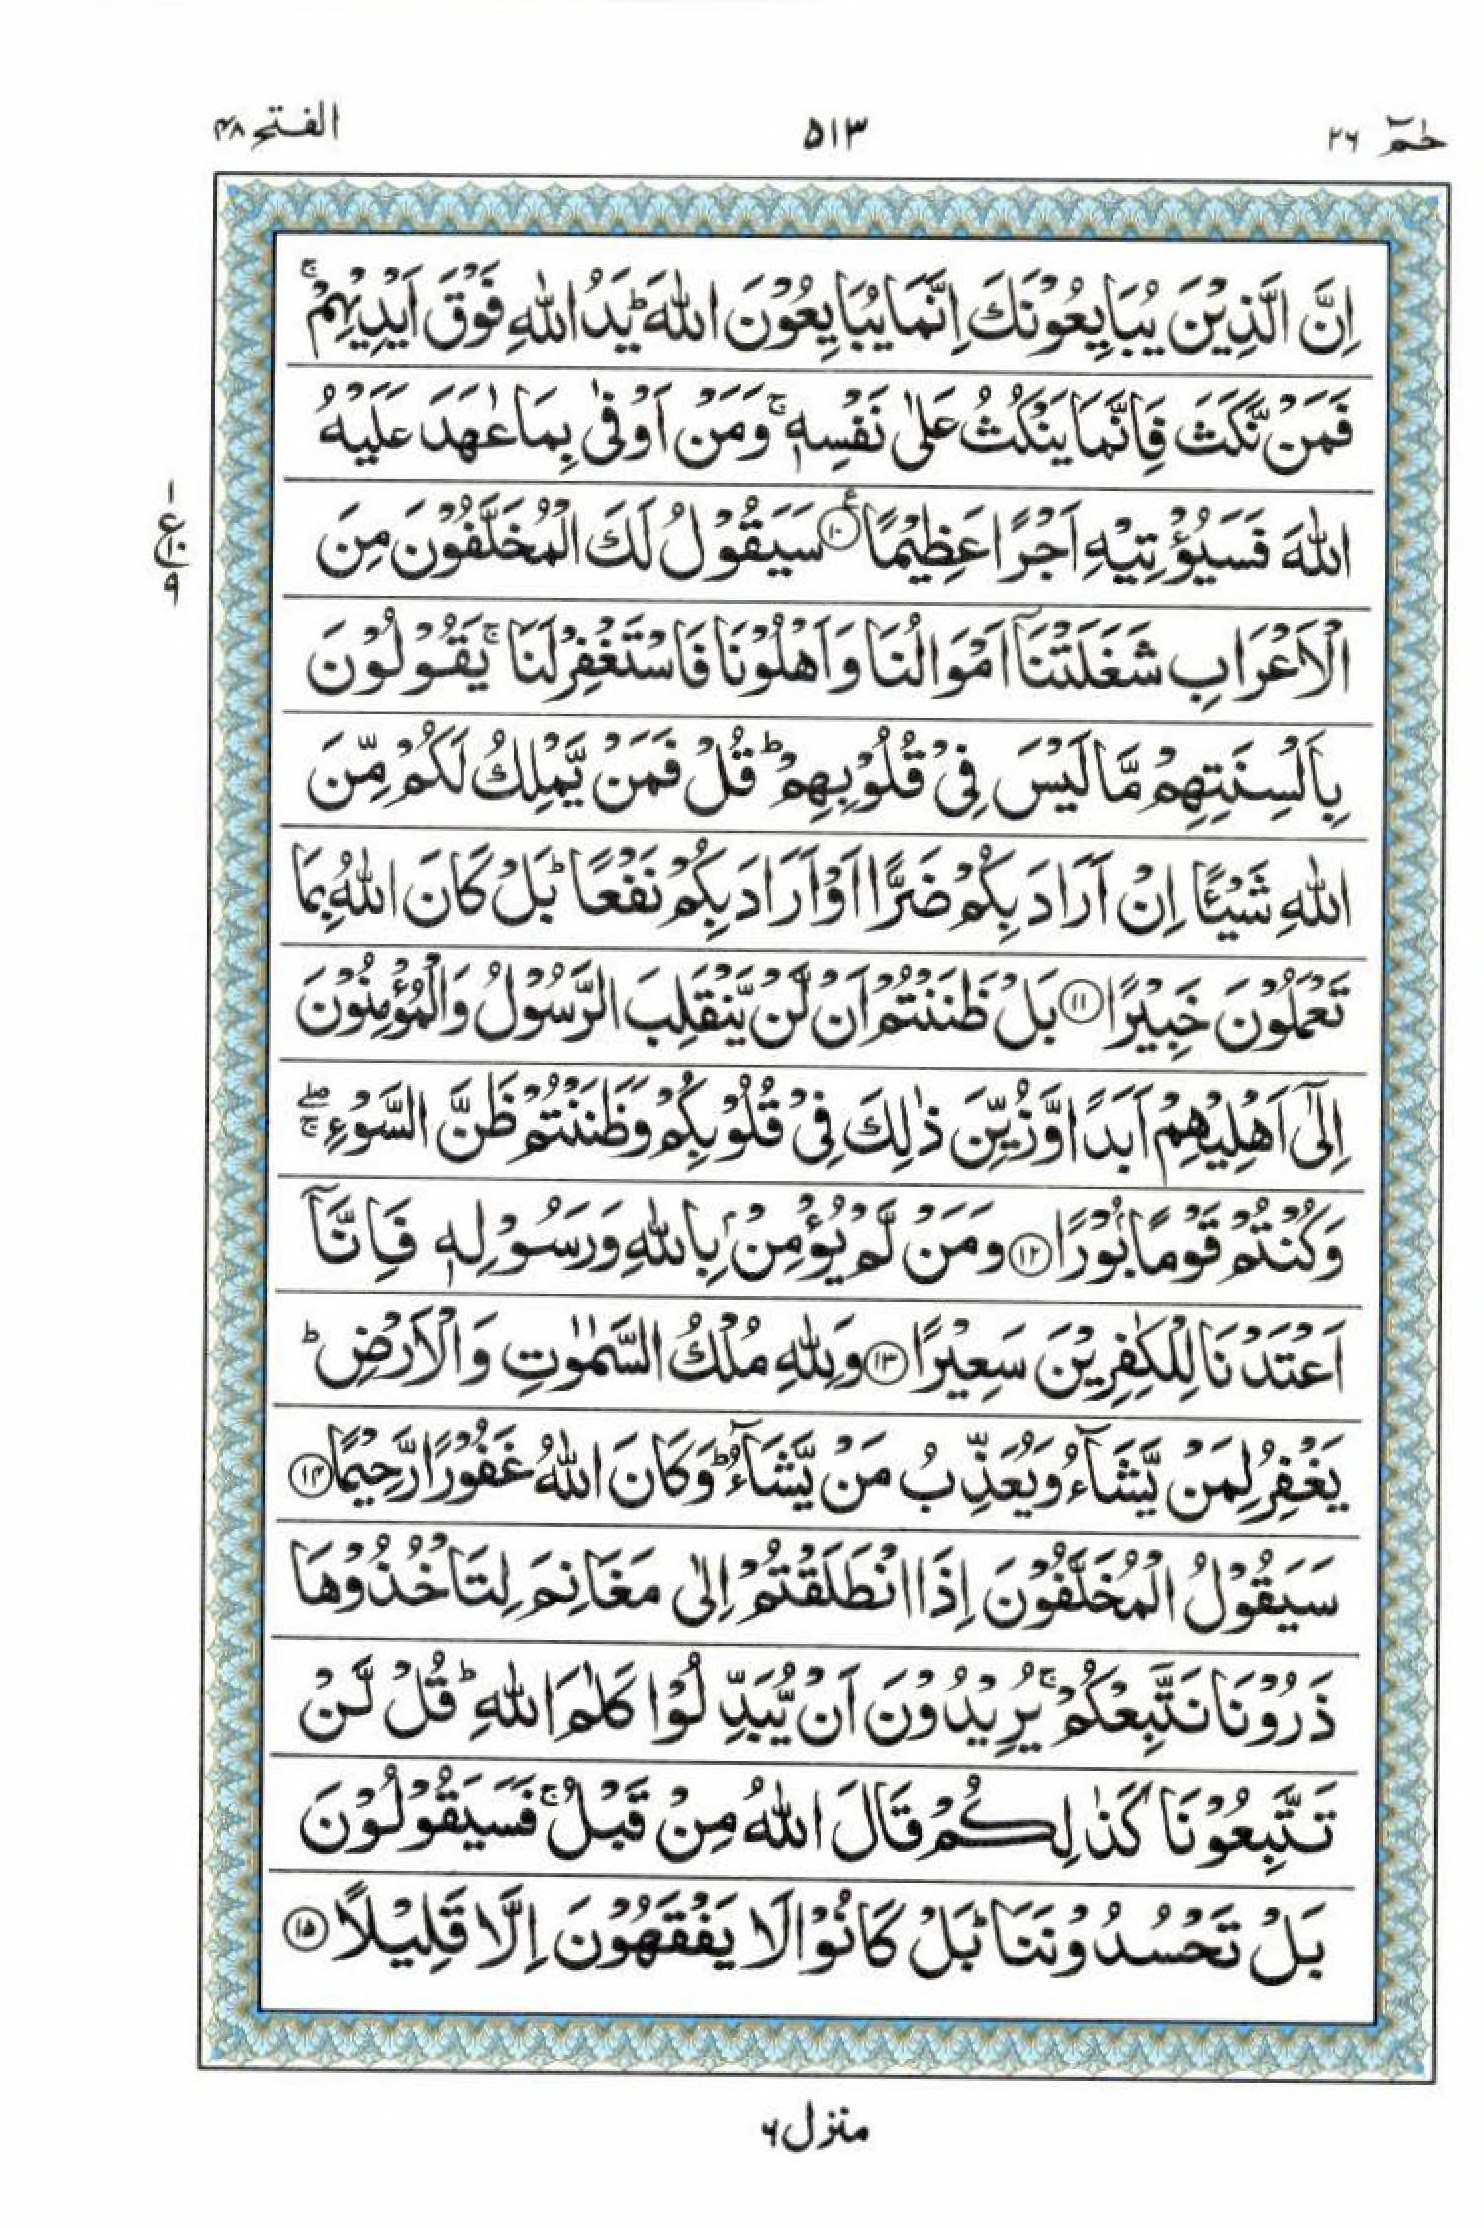 حٰمٓ ٢٦ ٥١٣ الفتح ٤٨
اِنَّ الَّذِيْنَ يُبَايِعُوْنَكَ اِنَّمَا يُبَايِعُوْنَ اللّٰهَ ؕ يَدُ اللّٰهِ فَوْقَ اَيْدِيْهِمْ ۚ
فَمَنْ نَّكَثَ فَاِنَّمَا يَنْكُثُ عَلٰى نَفْسِهٖ ۚ وَمَنْ اَوْفٰى بِمَا عٰهَدَ عَلَيْهُ
اللّٰهَ فَسَيُؤْتِيْهِ اَجْرًا عَظِيْمًا ؏ ⑩ سَيَقُوْلُ لَكَ الْمُخَلَّفُوْنَ مِنَ
١ ع ١٠ ٩
الْاَعْرَابِ شَغَلَتْنَاۤ اَمْوَالُنَا وَاَهْلُوْنَا فَاسْتَغْفِرْ لَنَا ۚ يَقُوْلُوْنَ
بِاَلْسِنَتِهِمْ مَّا لَيْسَ فِيْ قُلُوْبِهِمْ ؕ قُلْ فَمَنْ يَّمْلِكُ لَكُمْ مِّنَ
اللّٰهِ شَيْـًٔا اِنْ اَرَادَ بِكُمْ ضَرًّا اَوْ اَرَادَ بِكُمْ نَفْعًا ؕ بَلْ كَانَ اللّٰهُ بِمَا
تَعْمَلُوْنَ خَبِيْرًا ⑪ بَلْ ظَنَنْتُمْ اَنْ لَّنْ يَّنْقَلِبَ الرَّسُوْلُ وَالْمُؤْمِنُوْنَ
اِلٰۤى اَهْلِيْهِمْ اَبَدًا وَّزُيِّنَ ذٰلِكَ فِيْ قُلُوْبِكُمْ وَظَنَنْتُمْ ظَنَّ السَّوْءِ ۖۚ
وَكُنْتُمْ قَوْمًۢا بُوْرًا ⑫ وَمَنْ لَّمْ يُؤْمِنْۢ بِاللّٰهِ وَرَسُوْلِهٖ فَاِنَّاۤ
اَعْتَدْنَا لِلْكٰفِرِيْنَ سَعِيْرًا ⑬ وَلِلّٰهِ مُلْكُ السَّمٰوٰتِ وَالْاَرْضِ ؕ
يَغْفِرُ لِمَنْ يَّشَآءُ وَيُعَذِّبُ مَنْ يَّشَآءُ ؕ وَكَانَ اللّٰهُ غَفُوْرًا رَّحِيْمًا ⑭
سَيَقُوْلُ الْمُخَلَّفُوْنَ اِذَا انْطَلَقْتُمْ اِلٰى مَغَانِمَ لِتَاْخُذُوْهَا
ذَرُوْنَا نَتَّبِعْكُمْ ۚ يُرِيْدُوْنَ اَنْ يُّبَدِّلُوْا كَلٰمَ اللّٰهِ ؕ قُلْ لَّنْ
تَتَّبِعُوْنَا كَذٰلِكُمْ قَالَ اللّٰهُ مِنْ قَبْلُ ۚ فَسَيَقُوْلُوْنَ
بَلْ تَحْسُدُوْنَنَا ؕ بَلْ كَانُوْا لَا يَفْقَهُوْنَ اِلَّا قَلِيْلًا ⑮
منزل ٦